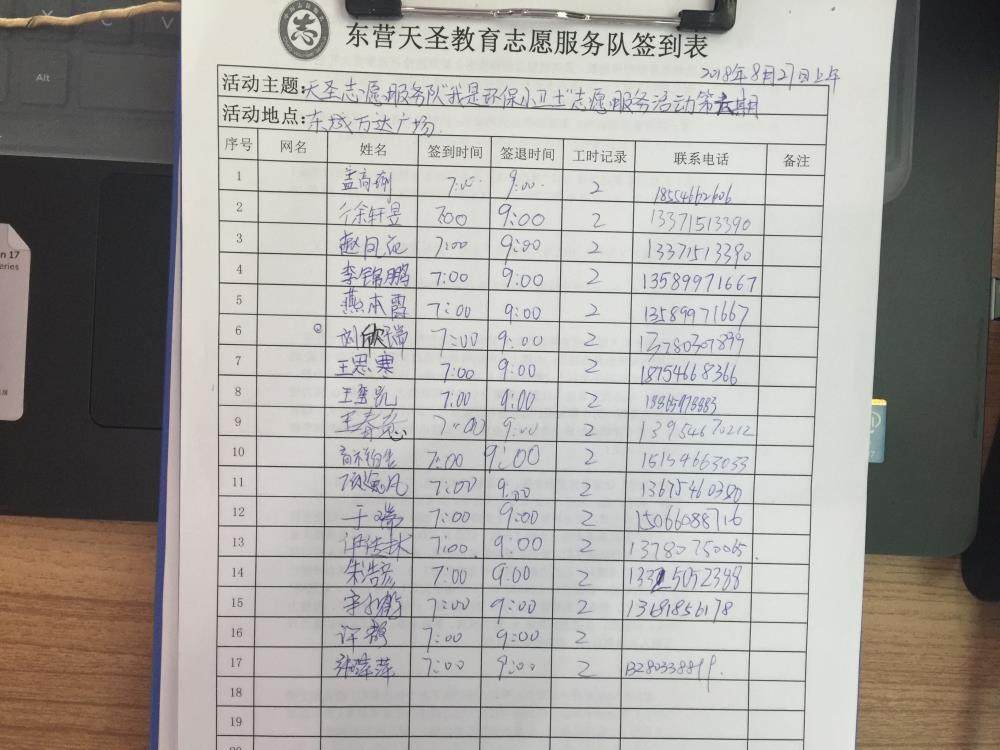 东营天圣教育志愿服务队签到表
2018年8月27日上午
活动主题:天圣志愿服务队"我是环保小卫士"志愿服务活动第六期
活动地点:东城万达广场.
序号 网名 姓名 签到时间 签退时间 工时记录 联系电话 备注
1 7:00 9:00 2 18554662606
2 徐轩昱 7:00 9:00 2 13371513390
3 7:00 9:00 2 13371513390
4 李锦鹏 7:00 9:00 2 13589971667
5 燕本霞 7:00 9:00 2 13589971667
6 刘欣瑞 7:00 9:00 2
7 王思寒 7:00 9:00 2 18754668366
8 7:00 9:00 2
9 7:00 9:00 2 13954670212
10 7:00 9:00 2 15154663033
11 7:00 9:00 2 13675460380
12 于瑞 7:00 9:00 2 15066088716
13 7:00 9:00 2 13780750065.
14 朱浩彦 7:00 9:00 2
15 7:00 9:00 2
16 许鹤 7:00 9:00 2
17 张萍萍 7:00 9:00 2
18
19
Alt
X
C
V